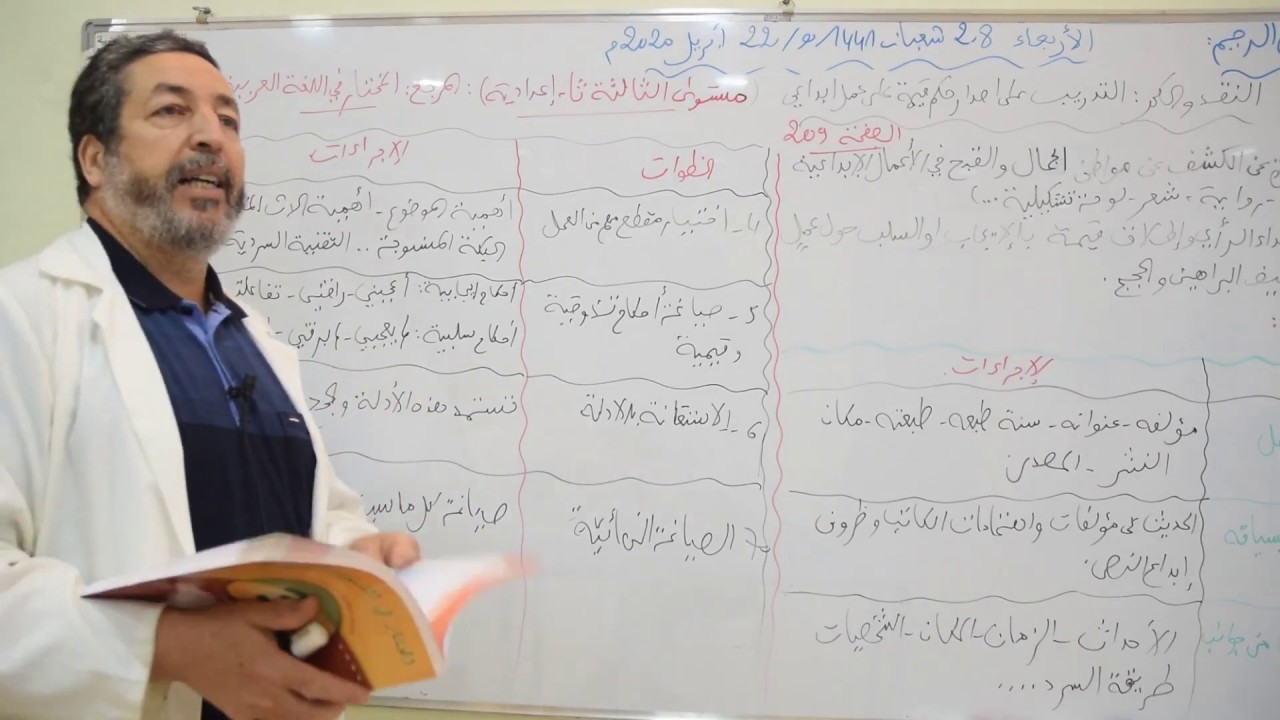 الرجيم: الأربعاء 28 شعبان 1441 ه/ 22 أبريل 2020م
النقد والحكم: التدريب على إصدار حكم قيمة على عمل إبداعي (مستوى الثالثة ثا-إعدادية): المرجع: المختار في اللغة العربية
الصفحة 209
عن الكشف عن مواطن الجمال والقبح في الأعمال الإبداعية
- رواية - شعر - لوحة تشكيلية ...)
الرأي وإطلاق قيمة بالإيجاب أو السلب حول عمل
البراهين والحجج.
الإجراءات
مؤلفه - عنوانه - سنة طبعه - طبعته - مكان
النشر - المصدر
الحديث عن مؤلفات واهتمامات الكاتب وظروف
إبداع النص.
الأحداث - الزمان - المكان - الشخصيات
طريقة السرد....
الخطوات
4- اختيار مقطع مهم من العمل
5- صياغة أحكام تذوقية
وقيمية
6- الاستعانة بالأدلة
7- الصياغة النهائية
الإجراءات
أهمية الموضوع - أهمية
الحبكة المنسوجة .. التقنية السردية
أحكام إيجابية: أعجبني - راقني -
أحكام سلبية: لم يعجبني - لم يرقني -
تستمد هذه الأدلة
صياغة كل ما
المختار في